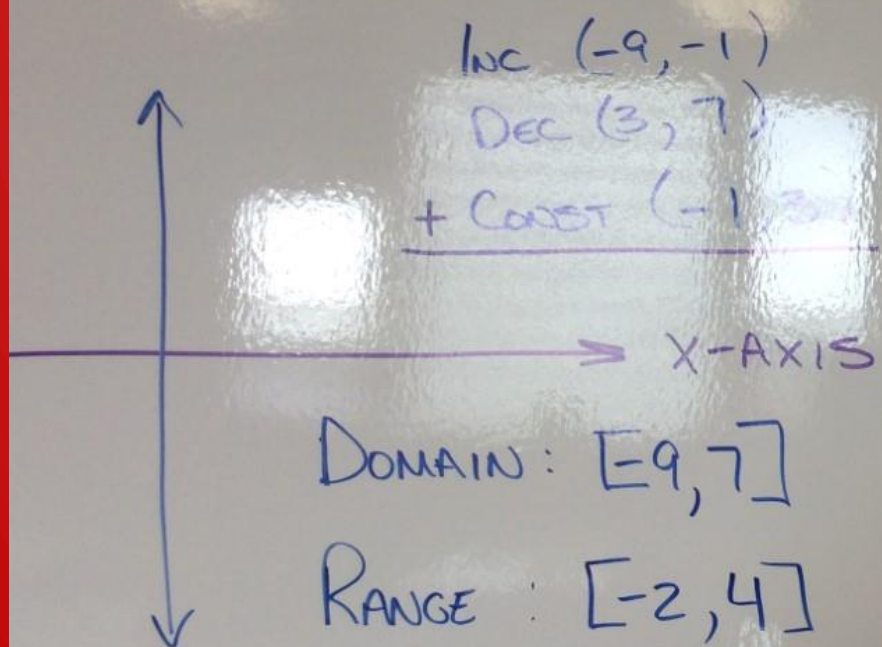 INC (-9,-1)
DEC (3,7)
+ CONST (-1,3)
X-AXIS
DOMAIN: [-9,7]
RANGE : [-2,4]